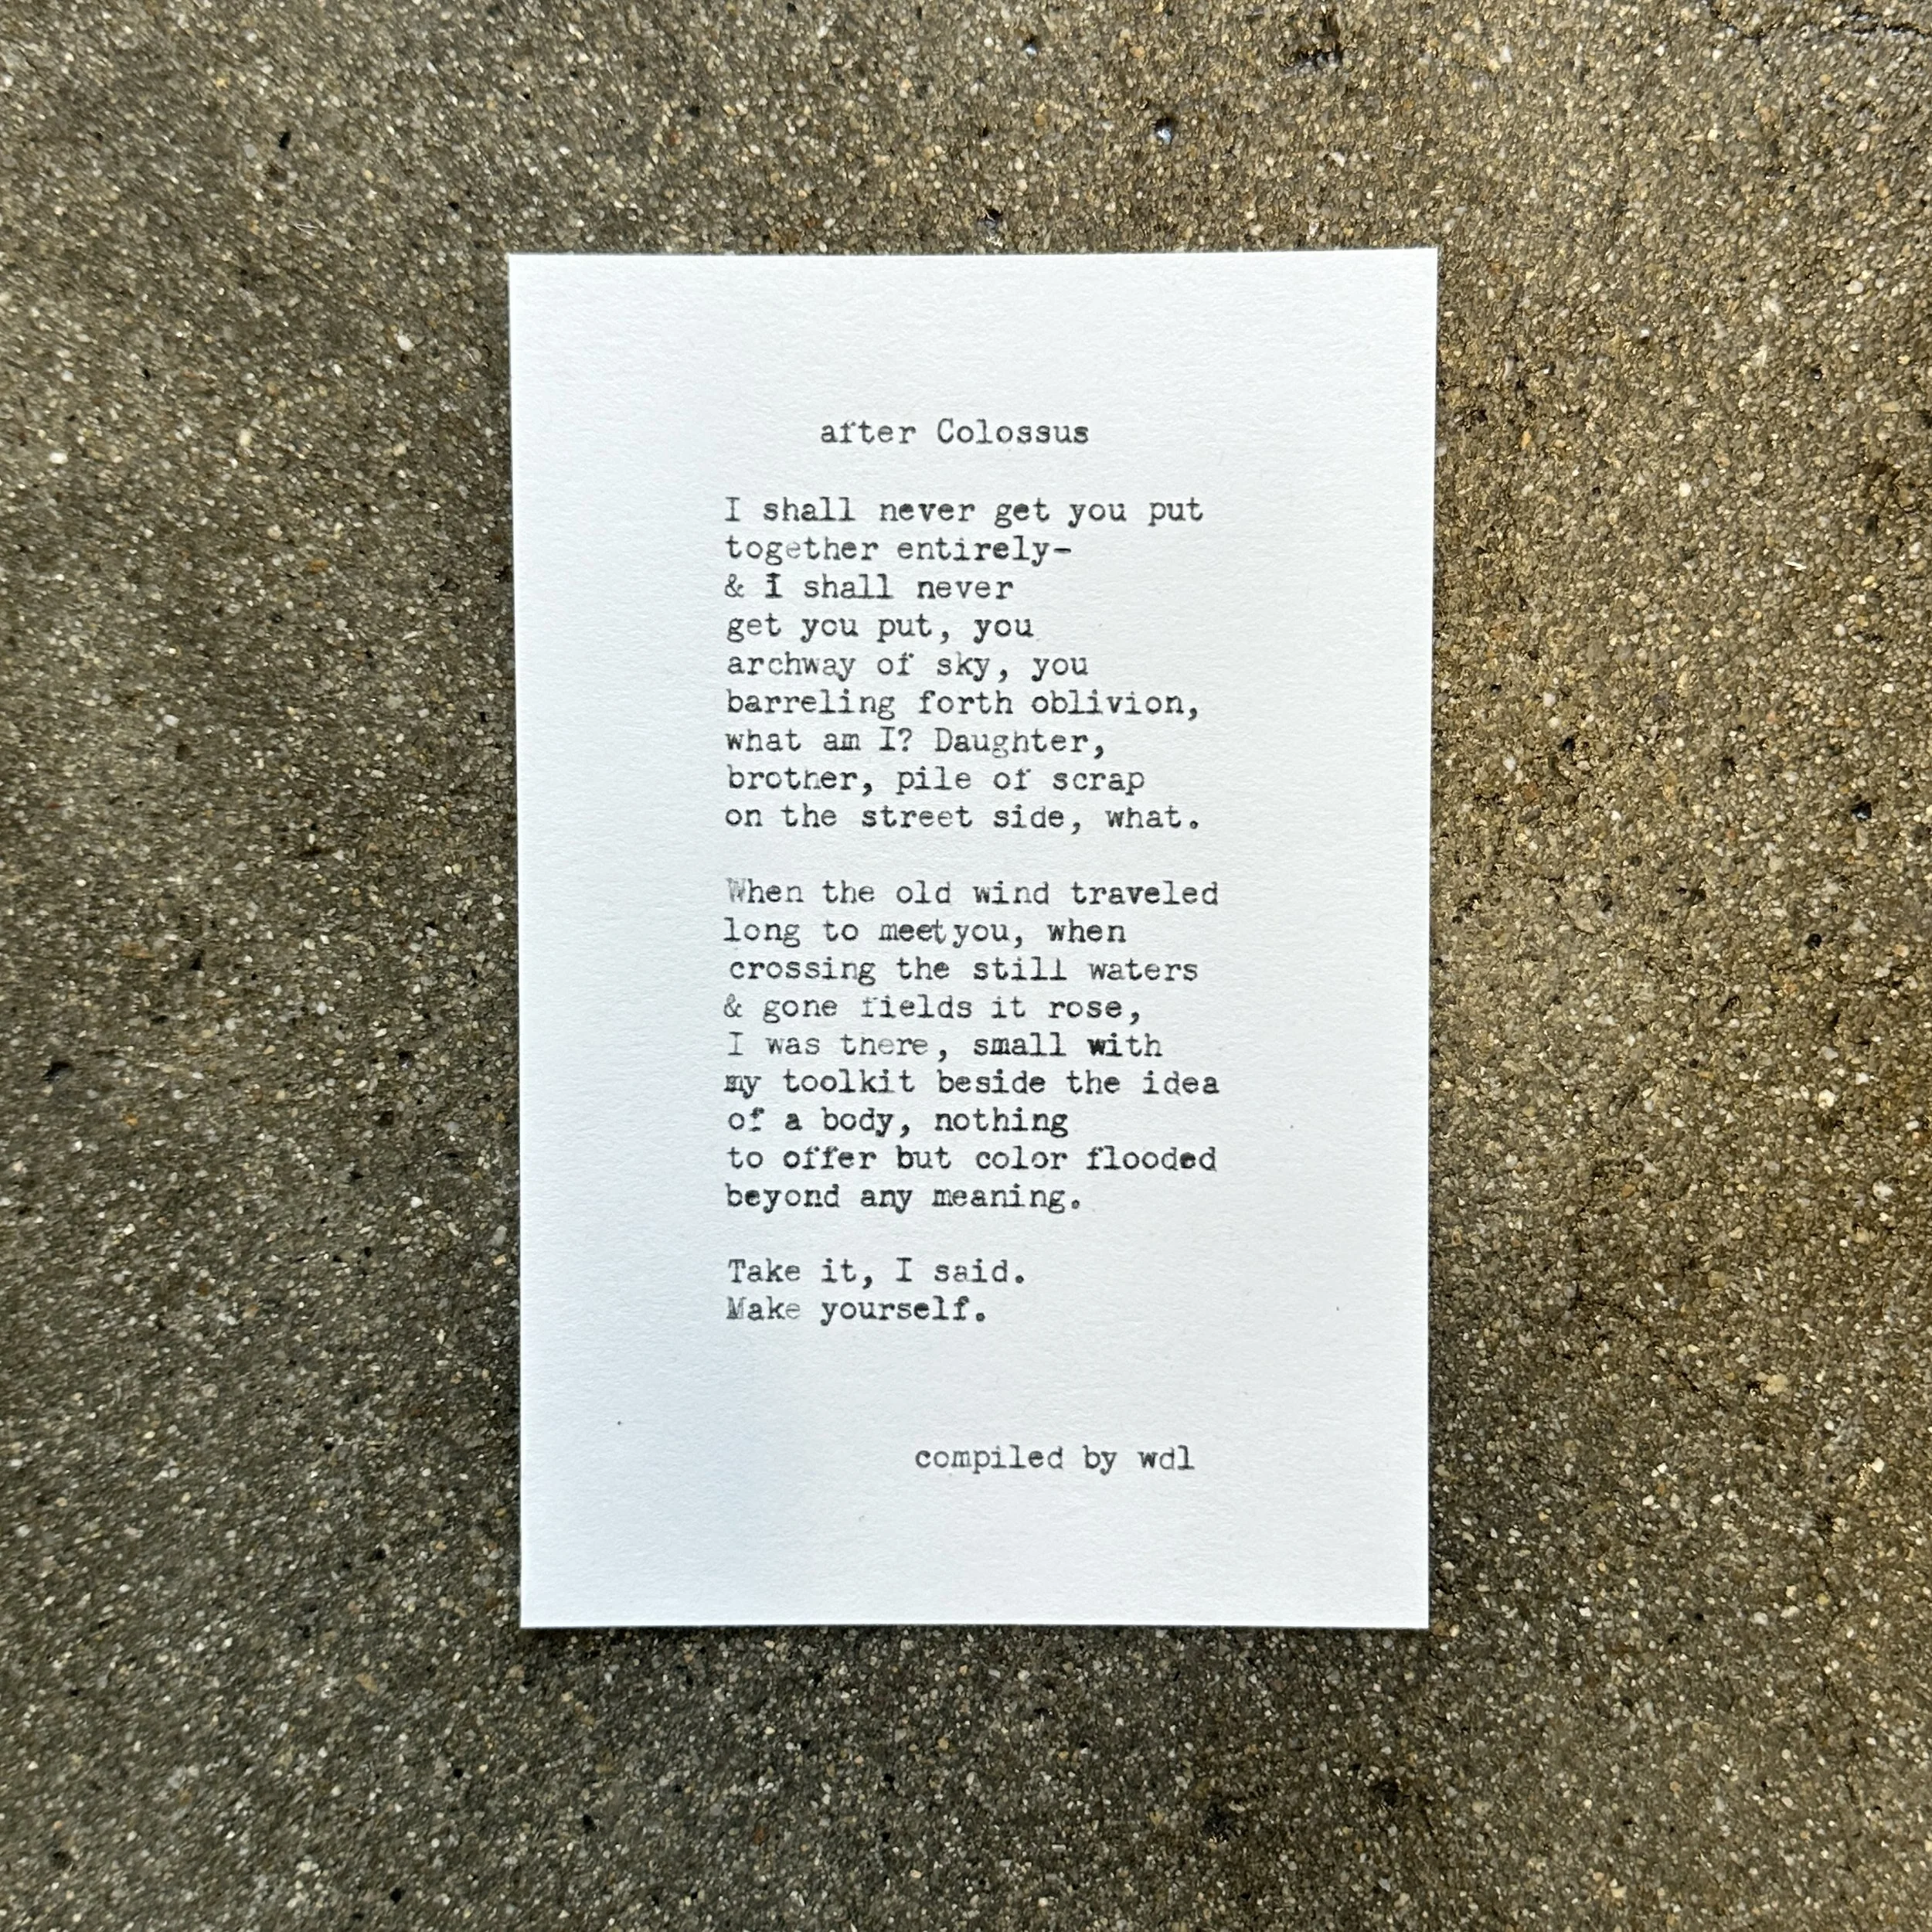 after Colossus
I shall never get you put
together entirely-
& I shall never
get you put, you
archway of sky, you
barreling forth oblivion,
what am I? Daughter,
brother, pile of scrap
on the street side, what.
When the old wind traveled
long to meet you, when
crossing the still waters
& gone fields it rose,
I was there, small with
my toolkit beside the idea
of a body, nothing
to offer but color flooded
beyond any meaning.
Take it, I said.
Make yourself.
compiled by wdl